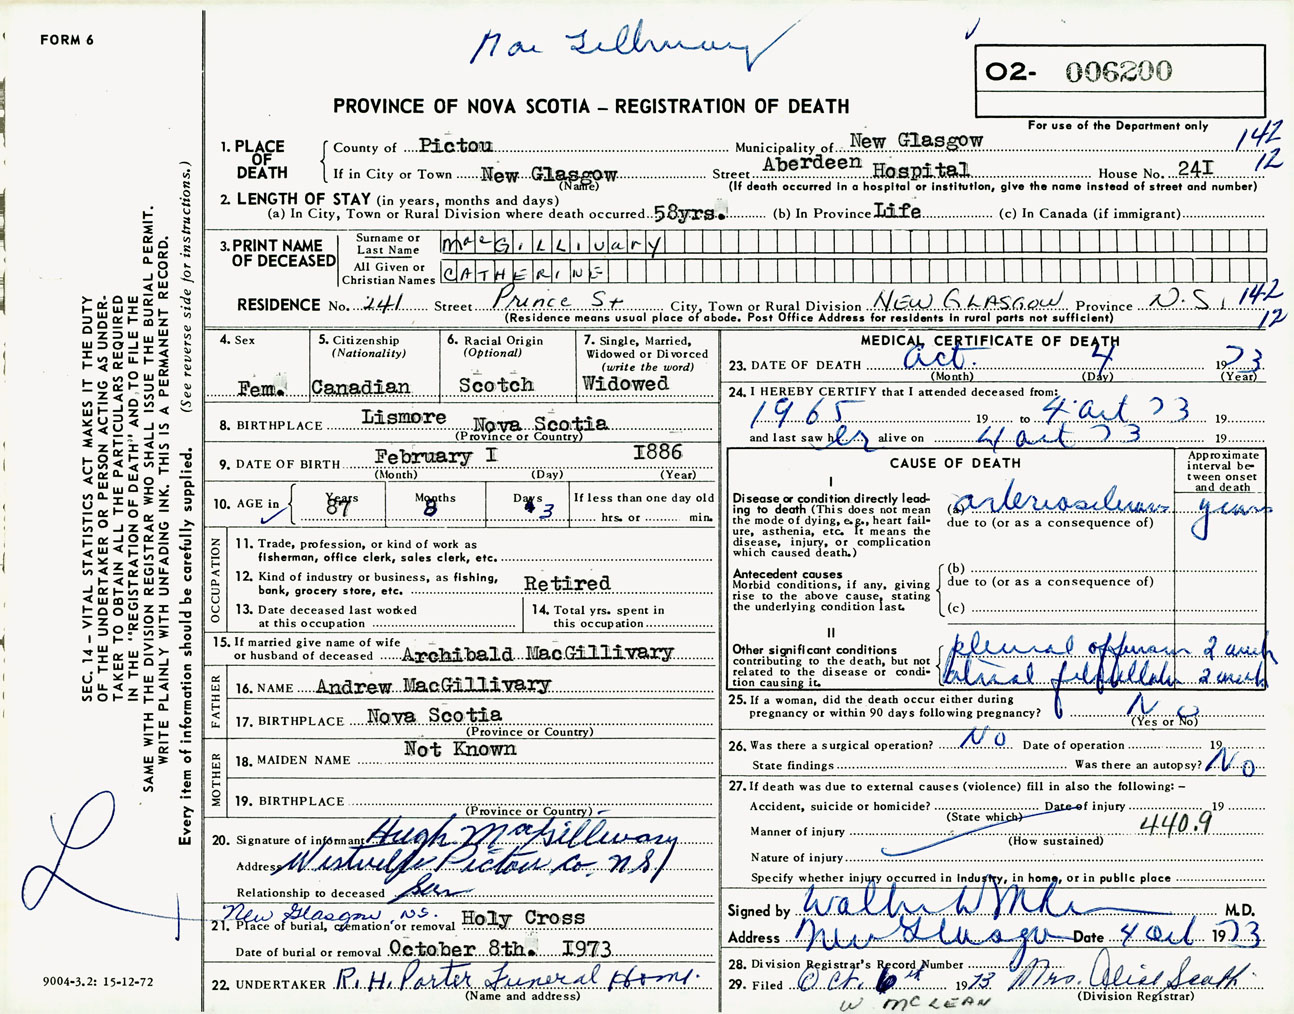 FORM 6
Mac Gillivary
O2- 006200
PROVINCE OF NOVA SCOTIA – REGISTRATION OF DEATH
For use of the Department only
1. PLACE OF DEATH
County of Pictou Municipality of New Glasgow 142
If in City or Town New Glasgow Street Aberdeen Hospital House No. 24I 12
(Name) (If death occurred in a hospital or institution, give the name instead of street and number)
2. LENGTH OF STAY (in years, months and days)
(a) In City, Town or Rural Division where death occurred 58yrs. (b) In Province Life (c) In Canada (if immigrant)
3. PRINT NAME OF DECEASED
Surname or Last Name MacGILLIVARY
All Given or Christian Names CATHERINE
RESIDENCE No. 241 Street Prince St City, Town or Rural Division NEW GLASGOW Province N.S. 142
(Residence means usual place of abode. Post Office Address for residents in rural parts not sufficient) 12
4. Sex Fem.
5. Citizenship (Nationality) Canadian
6. Racial Origin (Optional) Scotch
7. Single, Married, Widowed or Divorced (write the word) Widowed
8. BIRTHPLACE Lismore Nova Scotia
(Province or Country)
9. DATE OF BIRTH February I I886
(Month) (Day) (Year)
10. AGE in Years 87 Months 8 Days 3 If less than one day old hrs. or min.
OCCUPATION
11. Trade, profession, or kind of work as fisherman, office clerk, sales clerk, etc.
12. Kind of industry or business, as fishing, bank, grocery store, etc. Retired
13. Date deceased last worked at this occupation
14. Total yrs. spent in this occupation
15. If married give name of wife or husband of deceased Archibald MacGillivary
FATHER
16. NAME Andrew MacGillivary
17. BIRTHPLACE Nova Scotia
(Province or Country)
MOTHER
18. MAIDEN NAME Not Known
19. BIRTHPLACE
(Province or Country)
20. Signature of informant Hugh MacGillivary
Address Westville Pictou Co. N.S.
Relationship to deceased Son
New Glasgow, N.S.
21. Place of burial, cremation or removal Holy Cross
Date of burial or removal October 8th. I973
22. UNDERTAKER R. H. Porter Funeral Home.
(Name and address)
MEDICAL CERTIFICATE OF DEATH
23. DATE OF DEATH Oct. 4 1973
(Month) (Day) (Year)
24. I HEREBY CERTIFY that I attended deceased from:
1965 19 to 4 Oct 73 19
and last saw her alive on 4 Oct 73 19
CAUSE OF DEATH
Approximate interval between onset and death
I
Disease or condition directly leading to death (This does not mean the mode of dying, e.g., heart failure, asthenia, etc. It means the disease, injury, or complication which caused death.)
(a) arteriosclerosis years
due to (or as a consequence of)
Antecedent causes
Morbid conditions, if any, giving rise to the above cause, stating the underlying condition last.
(b)
due to (or as a consequence of)
(c)
II
Other significant conditions contributing to the death, but not related to the disease or condition causing it.
pleural effusion 2 weeks
atrial fibrillation 2 weeks
25. If a woman, did the death occur either during pregnancy or within 90 days following pregnancy? No
(Yes or No)
26. Was there a surgical operation? NO Date of operation 19
State findings Was there an autopsy? No
27. If death was due to external causes (violence) fill in also the following: –
Accident, suicide or homicide? Date of injury 19
(State which)
Manner of injury 440.9
(How sustained)
Nature of injury
Specify whether injury occurred in Industry, in home, or in public place
Signed by M.D.
Address New Glasgow Date 4 Oct 1973
28. Division Registrar's Record Number
29. Filed Oct. 6th 1973 Mrs.
(Division Registrar)
W McLEAN
SEC. 14 – VITAL STATISTICS ACT MAKES IT THE DUTY
OF THE UNDERTAKER OR PERSON ACTING AS UNDERTAKER
TO OBTAIN ALL THE PARTICULARS REQUIRED
IN THE "REGISTRATION OF DEATH" AND TO FILE THE
SAME WITH THE DIVISION REGISTRAR WHO SHALL ISSUE THE BURIAL PERMIT.
WRITE PLAINLY WITH UNFADING INK. THIS IS A PERMANENT RECORD.
Every item of information should be carefully supplied. (See reverse side for instructions.)
9004-3.2: 15-12-72